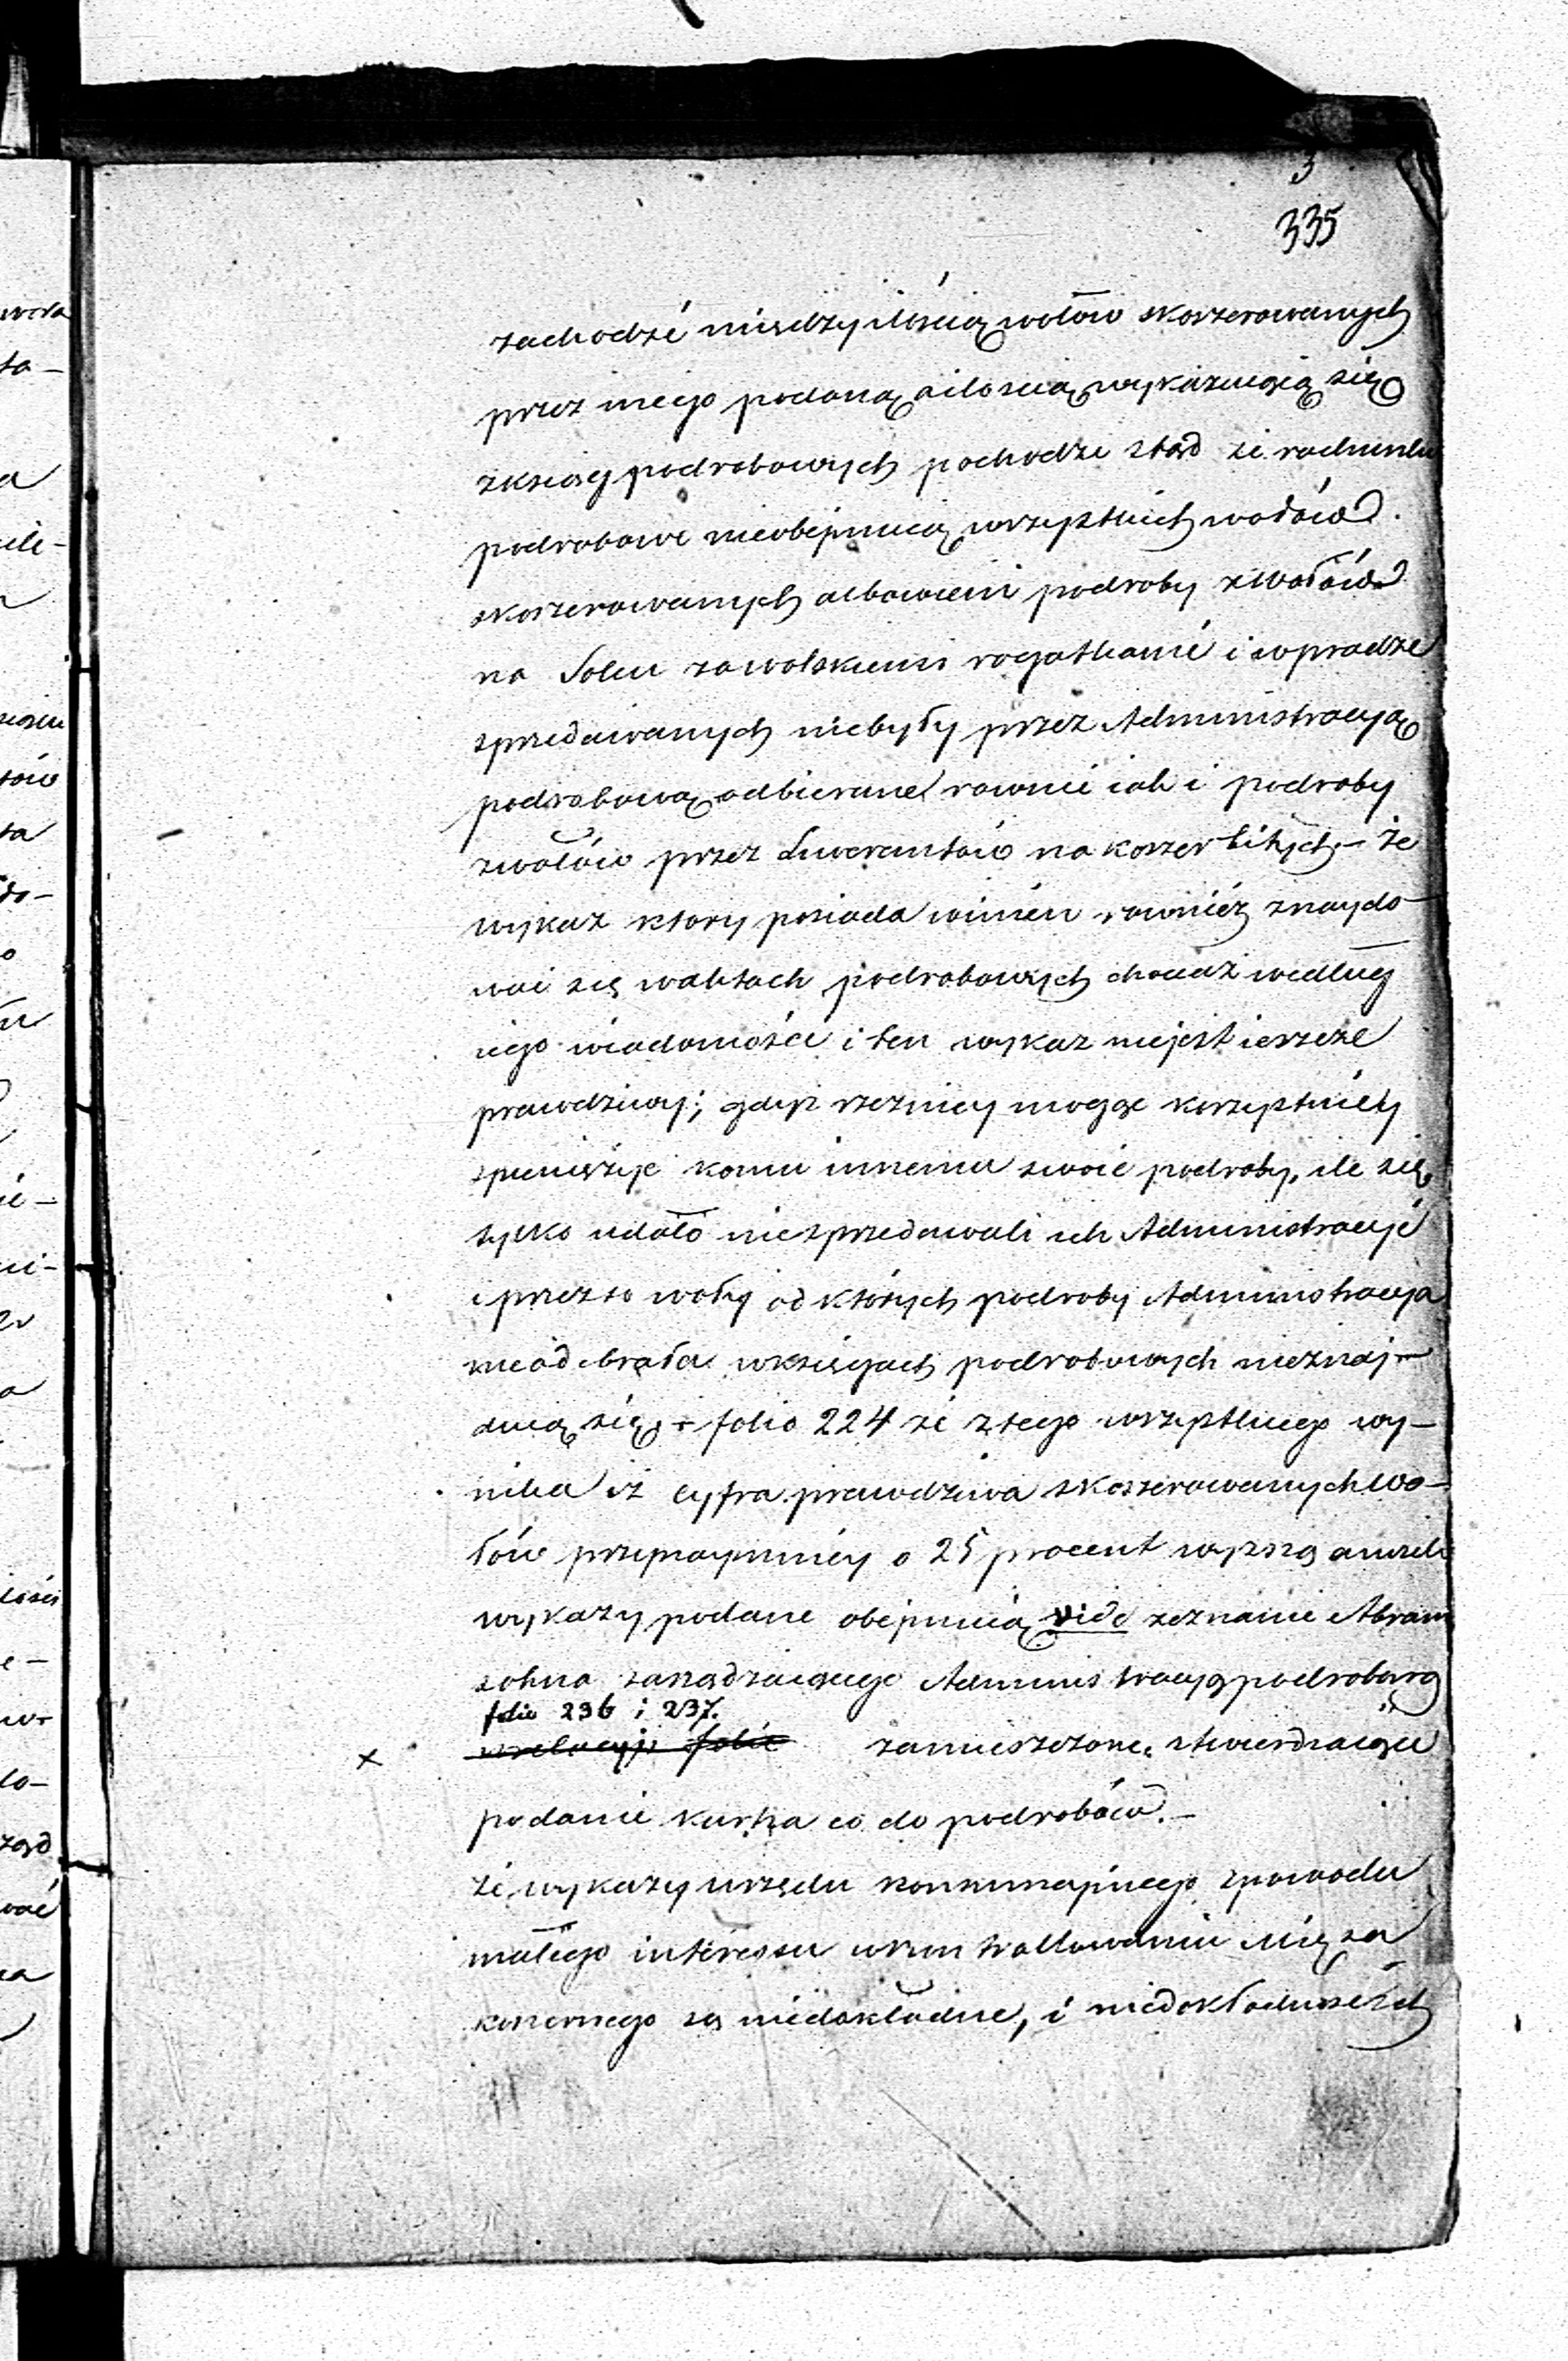 3
335
zachodzi między ilością wołów skoszerowanych
przez niego podaną a ilością wykazuiącą się
z ksiąg podrobowych pochodzi ztąd że rachunki
podrobowe nieobejmuią wszystkich wołów
skoszerowanych albowiem podroby z wołów
na Solcu za wolskiemi rogatkami i w pradze
sprzedawanych niebyły przez Administracyą
podrobową odbierane rownie iak i podroby
z wołów przez Liwerantów na koszer bitych. – że
wykaz ktory posiada winien rownież znaydo-
wać się w aktach podrobowych chociaż według
iego wiadomości i ten wykaz niejest ieszcze
prawdziwy; gdyż rzeznicy mogąc korzystniey
spieniężyć komu innemu swoie podroby, ile się
tylko udało niesprzedawali ich Administracyi
i przez to woły od których podroby Administracyja
nieodebrała w księgach podrobowych nieznaj-
duią się, – folio 224 że z tego wszystkiego wy-
nika iż cyfra prawdziwa skoszerowanych wo-
łów przynaymniey o 25 procent wyższą aniżeli
wykazy podane obejmuią vide zeznanie Abram
sohna zarządzaiącego Administracyą podrobową
folio 236 i 237.
x w relacyi folio zamieszczone, stwierdzaiące
podanie Kurtza co do podrobów. –
że wykazy urzędu konsumcyinego z powodu
małego interessu w kontrollowaniu Mięsa
koszernego są niedokładne, i niedokładność ich